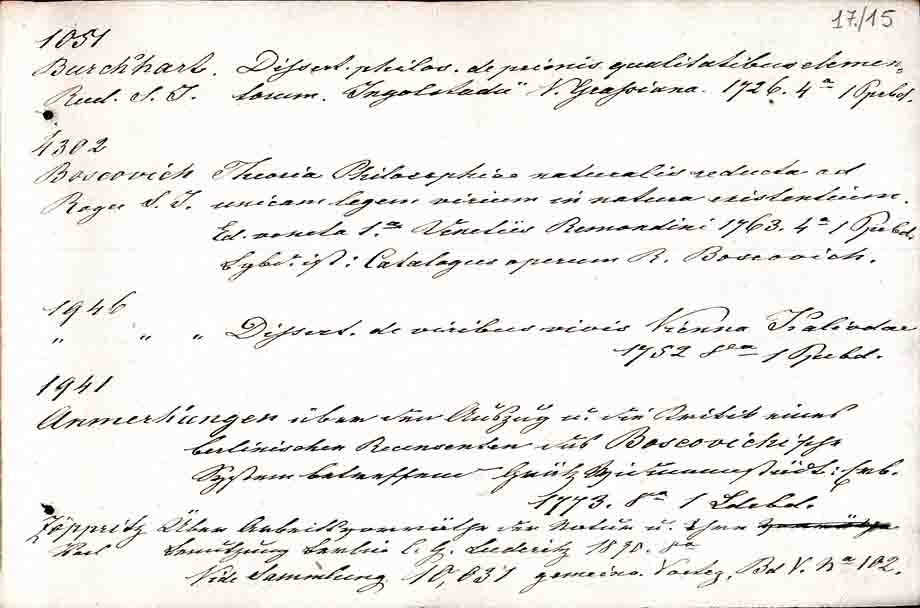 17./15
1051
Burckhart. Dissert. philos. de primis qualitatibus elemen-
Rud. S. J. torum. Ingolstadii N. Grassiana. 1726. 4a 1 Ppbd.
4302
Boscovich Theoria Philosophiae naturalis reducta ad
Roger S. J. unicam legem virium in natura existentium.
Ed. veneta 1.a Venetiis Remondini 1763. 4a 1 Ppbd.
ist: Catalogus operum R. Boscovich.
1946
" " " Dissert. de viribus vivis Vienna Kaliwodae
1752 8va 1 Ppbd.
1941
Anmerkungen über den Auszug u. die Kritik eines
berlinischen Recensenten das Boscovichi'sche
System betreffend Grätz Widmannstädt: Erb.
1773. 8a 1 Ldebd.
Zöppritz Über Arbeitsvorräthe der Natur u. ihre
Karl Benutzung Berlin C. G. Luderitz 1870. 8a
Vide Sammlung 10,637 gemein. Vortr. Bd V. Na 102.